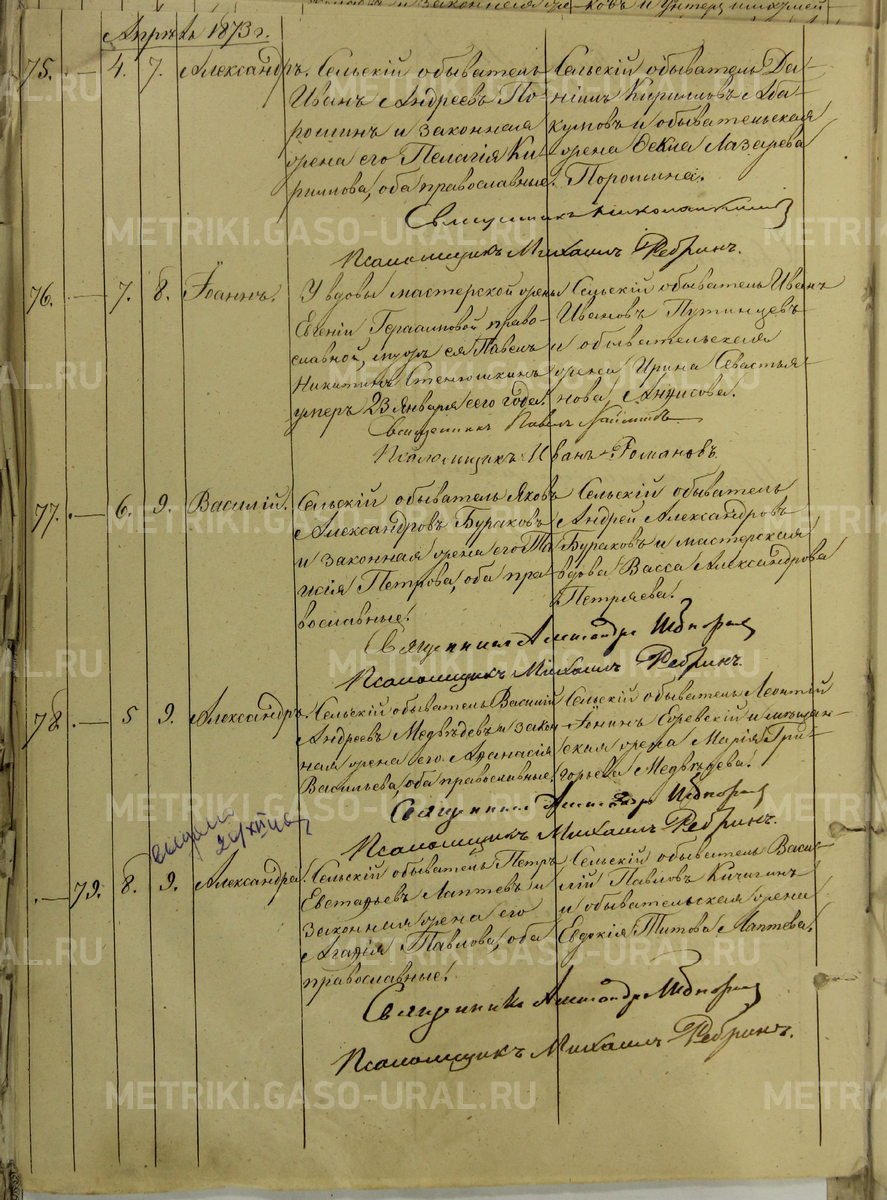 Апрѣль 1873 г.
75. 4. 7. Александръ. Сельскій обыватель Сельскій обыватель Да-
Иванъ Андреевъ По- ніилъ Кирилловъ Аба-
рошинъ и законная кумовъ и обывательская
жена его Пелагія Ки- жена Ѳекла Лазарева
риллова, оба православные. Порошина.
Священникъ
Псаломщикъ Михаилъ Ребринъ.
76. 7. 8. Іоаннъ. У вдовы мастерской жены Сельскій обыватель Иванъ
Евгеніи Герасимовой право- Ивановъ Путинцевъ
славной, мужъ ея Павелъ и обывательская
Никитинъ Стенюшкинъ жена Ирина Севастья-
умеръ 23 Января сего года. нова Анисова.
Священникъ Павелъ
Псаломщикъ Иванъ Романовъ.
77. 6. 9. Василій. Сельскій обыватель Яковъ Сельскій обыватель
Александровъ Бураковъ Андрей Александровъ
и законная жена его Та- Бураковъ и мастерская
исія Петрова, оба пра- вдова Васса Александрова
вославные. Петряева.
Священникъ Александръ
Псаломщикъ Михаилъ Ребринъ.
78. 5 9. Александръ. Сельскій обыватель Василій Сельскій обыватель Леонтій
Андреевъ Медвѣдевъ и закон- Іонинъ и мѣщан-
ная жена его Аѳанасія ская жена Марія Гри-
Васильева, оба православные. горьева Медвѣдева.
Священникъ Александръ
Псаломщикъ Михаилъ Ребринъ.
79. 8. 9. Александра. Сельскій обыватель Петръ Сельскій обыватель Васи-
Евстафьевъ Лаптевъ и лій Павловъ Кичигинъ
законная жена его и обывательская жена
Агафія Павлова, оба Евдокія Титова Лаптева.
православные.
Священникъ Александръ
Псаломщикъ Михаилъ Ребринъ.
METRIKI.GASO-URAL.RU